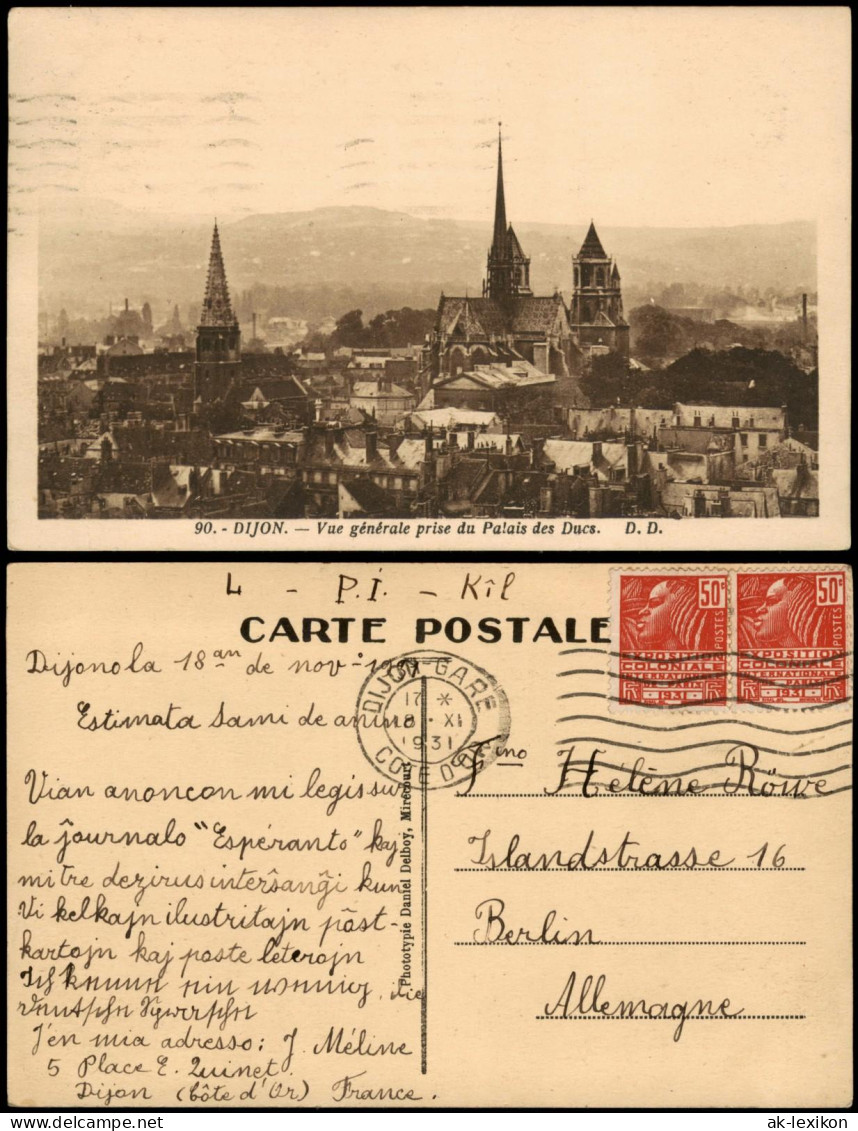 90. - DIJON. — Vue générale prise du Palais des Ducs. D. D.
4 - P.I. - Kîl
CARTE POSTALE
50c
POSTES
EXPOSITION
COLONIALE
INTERNATIONALE
PARIS
1931
50c
POSTES
EXPOSITION
COLONIALE
INTERNATIONALE
PARIS
1931
DIJON-GARE
17 *
18 · XI
1931
COTE D'OR
Dijonola 18an de nov-o 1931
Estimata samideanino
Vian anoncon mi legis sur
la ĵournalo "Espéranto" kaj
mi tre dezirus interŝanĝi kun
Vi kelkajn ilustritajn pôst-
kartojn kaj poste leterojn
Ich kann ein wenig die
deutschen
J'en mia adresso: J. Méline
5 Place E. Quinet
Dijon (Côte d'Or) France.
Phototypie Daniel Delboy, Mirecourt
Fino Hélène Röwe
Islandstrasse 16
Berlin
Allemagne
ak-lexikon.com